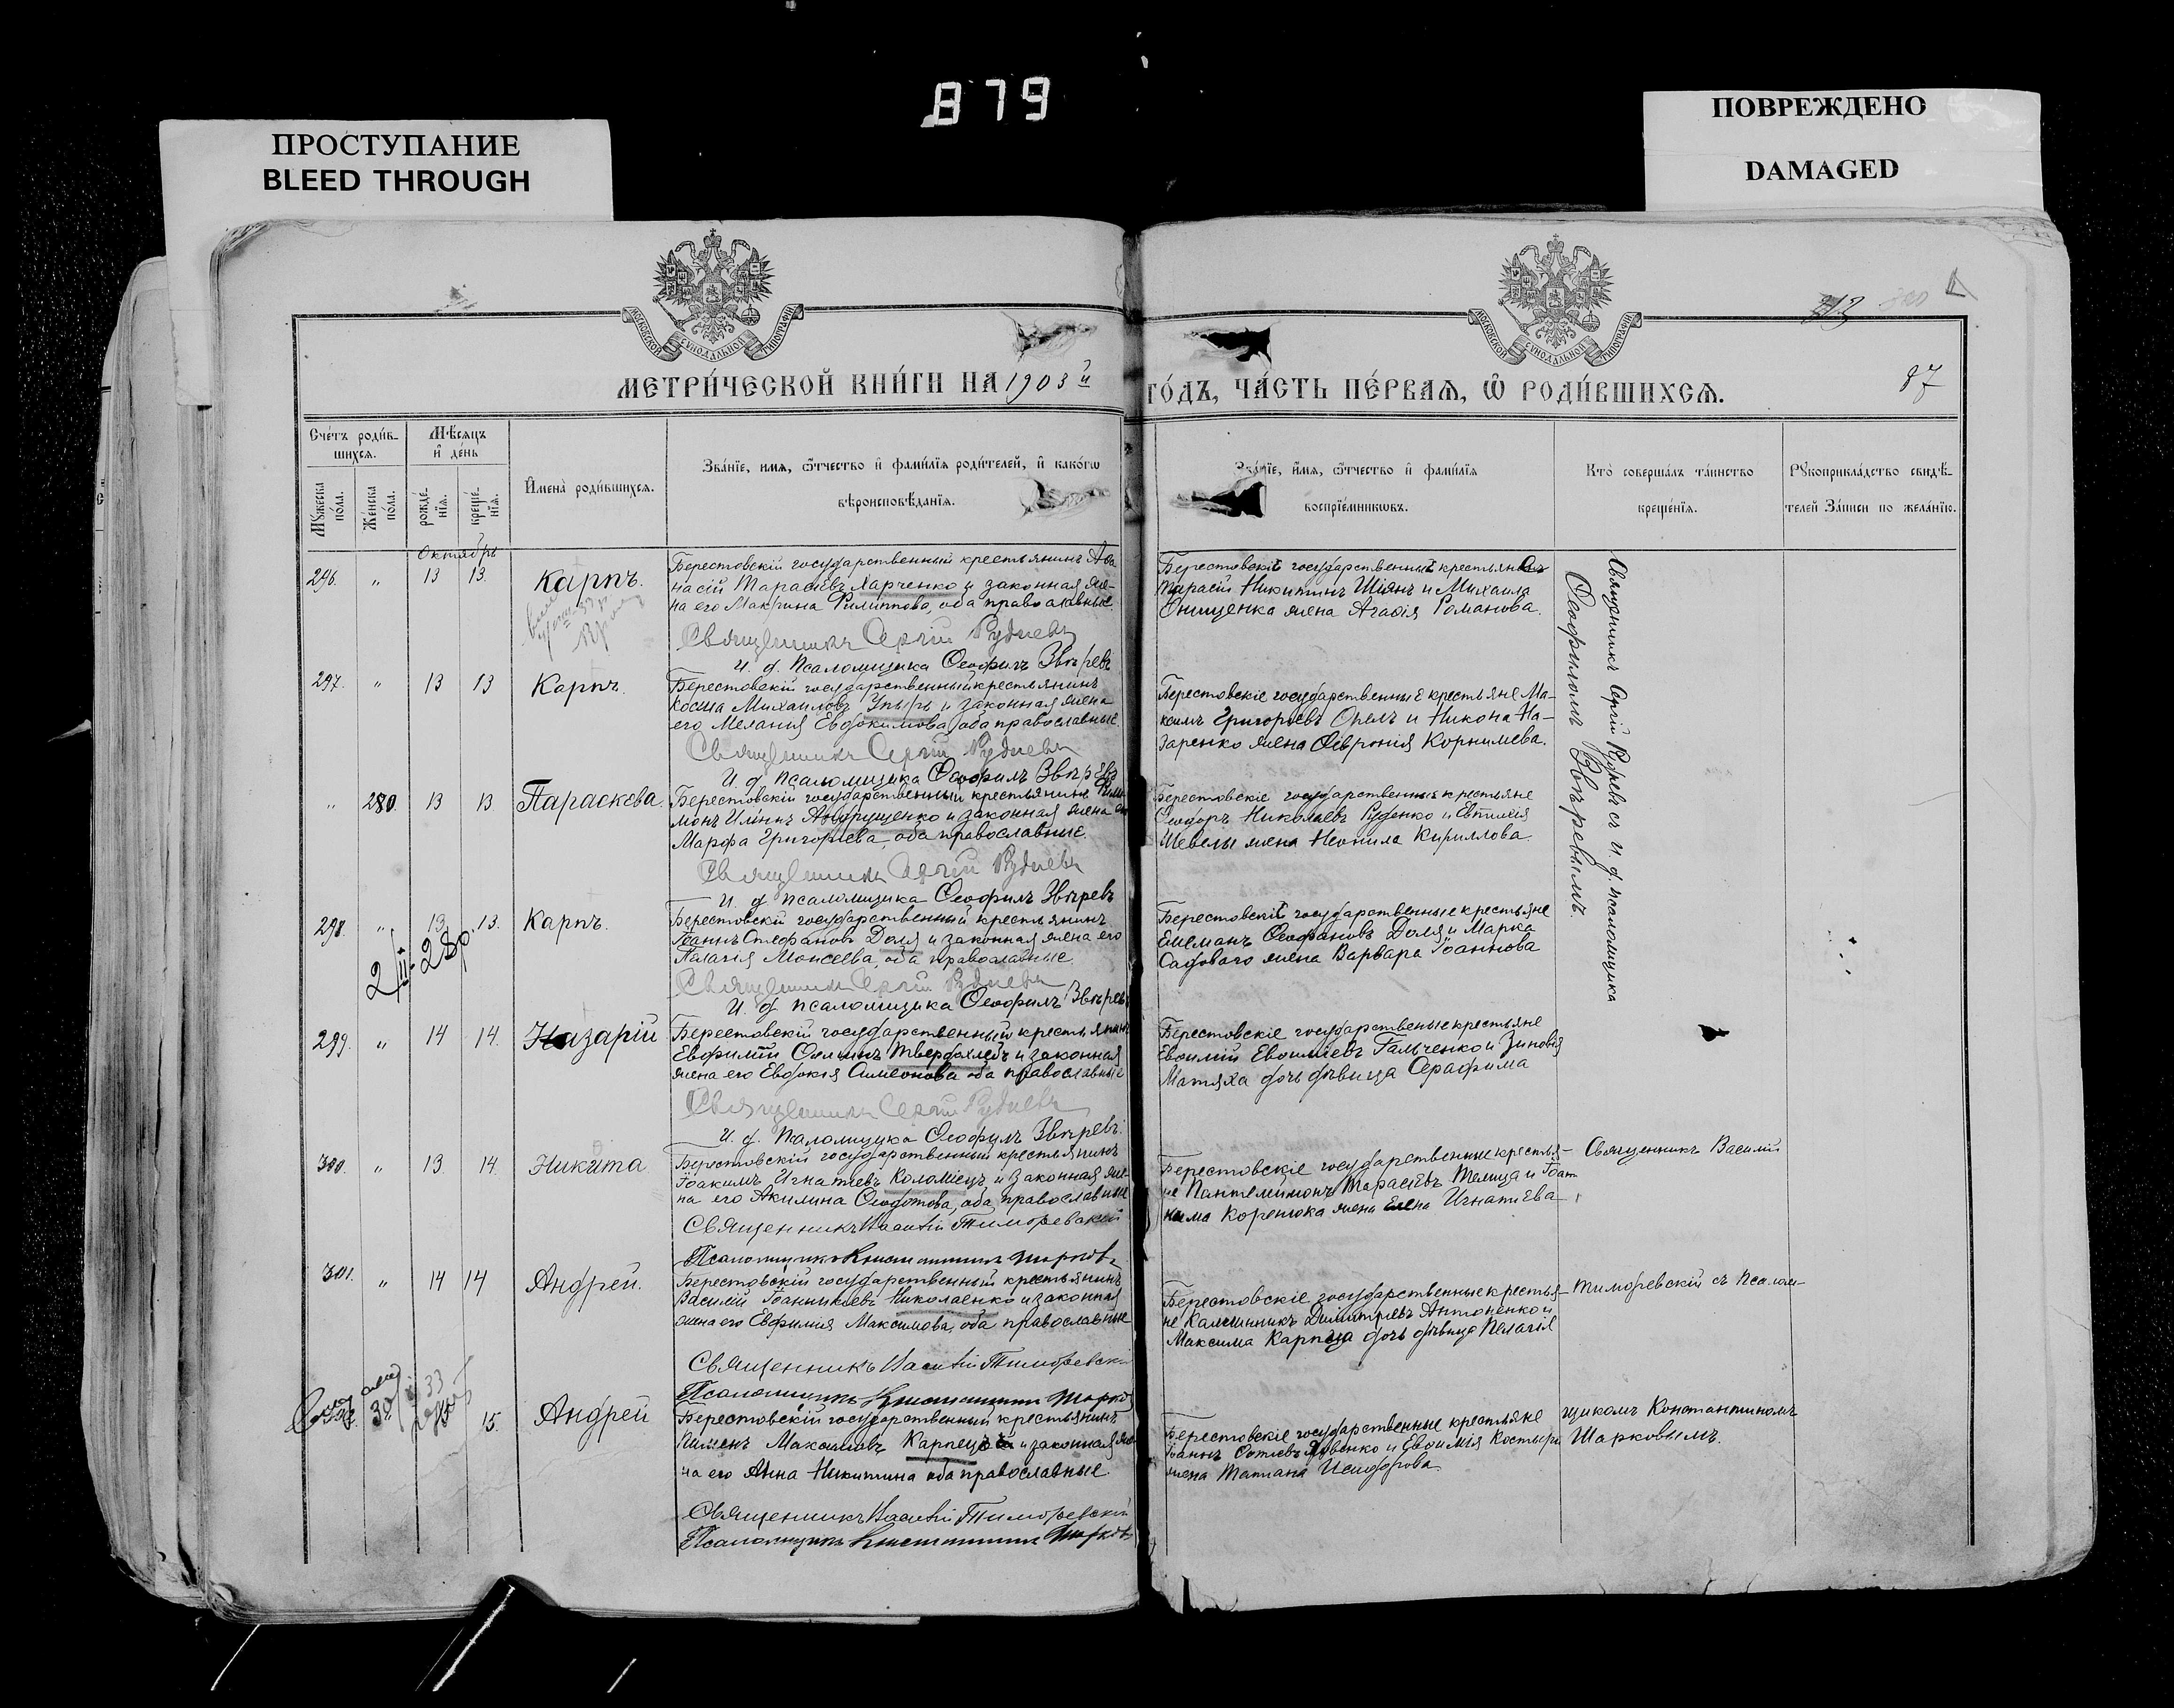 879
ПРОСТУПАНИЕ
BLEED THROUGH
ПОВРЕЖДЕНО
DAMAGED
МОСКОВСКОЙ СѴНОДАЛЬНОЙ ТИПОГРАФІИ
МОСКОВСКОЙ СѴНОДАЛЬНОЙ ТИПОГРАФІИ
313
МЕТРИ́ЧЕСКОЙ КНИ́ГИ НА 1903й ГО́ДЪ, ЧА́СТЬ ПЕ́РВАѦ, Ѡ҆ РОДИ́ВШИХСѦ.
87
Сче́тъ роди́в-
шихсѧ.
Мѣ́сѧцъ
и҆ де́нь
Мꙋ́жеска
по́ла.
Же́нска
по́ла.
рожде́-
нїѧ.
креще́-
нїѧ.
И҆мена̀ роди́вшихсѧ.
Зва́нїе, имѧ, ѻ҆́тчество и҆ фами́лїѧ роди́телей, и҆ како́гѡ
вѣроисповѣ́данїѧ.
Зва́нїе, и҆́мѧ, ѻ҆́тчество и҆ фами́лїѧ
воспрїе́мникѡвъ.
Кто̀ соверша́лъ та́инство
креще́нїѧ.
Рꙋкоприкла́дство свидѣ́-
телей за́писи по жела́нїю.
Октябрь
296. " 13 13. Карпъ.
Берестовскій государственный крестьянинъ Аѳа
насій Тарасіевъ Харченко и законная же-
на его Макрина Филиппова, оба православные.
Священникъ Сергій Рудневъ
И. д. псаломщика Ѳеофилъ Звѣревъ
Тарасій Никитинъ Шіянъ и Михаила
Онищенка жена Агаѳія Романова.
Священникъ Сергій Рудневъ съ и. д. псаломщика
Ѳеофиломъ Звѣревымъ.
297. " 13 13 Карпъ.
Берестовскій государственный крестьянинъ
Косма Михаиловъ Упырь и законная жена
его Меланія Евдокимова, оба православные
Священникъ Сергій Рудневъ
И. д. псаломщика Ѳеофилъ Звѣревъ
Берестовскіе государственные крестьяне Ма-
ксимъ Григорьевъ Орелъ и Никона На-
заренко жена Ѳевронія Корнилиева.
" 280. 13 13 Параскева.
Берестовскій государственный крестьянинъ
Андрущенко и законная жена
Марѳа Григорьева, оба православные.
Священникъ Сергій Рудневъ
И. д. псаломщика Ѳеофилъ Звѣревъ
Берестовскіе государственные крестьяне
Ѳеодоръ Николаевъ Руденко и Евѳимія
жена Неонила Кириллова.
298. " 13. 13. Карпъ.
Берестовскій государственный крестьянинъ
Іоаннъ Стефановъ Доля и законная жена его
Палагія Моисеева, оба православные
Священникъ Сергій Рудневъ
И. д. псаломщика Ѳеофилъ Звѣревъ
Берестовскіе государственные крестьяне
Ѳеофановъ Доля и Марка
Садоваго жена Варвара Іоаннова
299. " 14 14. Назарій
Берестовскій государственный крестьянинъ
Твердохлебъ и законная
жена его Евдокія Симеонова оба православные
Священникъ Сергій Рудневъ
И. д. псаломщика Ѳеофилъ Звѣревъ.
Берестовскіе государственые крестьяне
Евѳимій Евѳиміевъ Гальченко и Зиновія
Матяха дочь дѣвица Серафима
300. " 13. 14. Никита.
Берестовскій государственный крестьянинъ
Іоакимъ Игнатіевъ Коломіецъ и законная же-
на его Акилина Ѳеодотова, оба православные
Священникъ Василій Тимоѳевскій
Псаломщикъ Константинъ Шарковъ
Берестовскіе государственные крестья-
не Пантелеимонъ Тарасіевъ Телица и Іоан
кима Коренюка жена Елена Игнатіева
Священникъ Василій
301. " 14 14 Андрей.
Берестовскій государственный крестьянинъ
Василій Николаенко и законная
жена его Евфимія Максимова, оба православные
Священникъ Василій Тимоѳевскій
Псаломщикъ Константинъ Шарков
Берестовскіе государственные крестья-
не Каллинникъ Димитріевъ Антоненко и
Максима Карпеца дочь дѣвица Пелагія
Тимоѳевскій съ псалом-
15. Андрей
Берестовскій государственный крестьянинъ
Пименъ Максимовъ Карпецъ и законная же
на его Анна Никитина оба православные
Священникъ Василій Тимоѳевскій
Псаломщикъ Константинъ Шарковъ
Берестовскіе государственные крестьяне
и Евѳимія Костыри
жена Татіана Исидорова.
щикомъ Константиномъ
Шарковымъ.